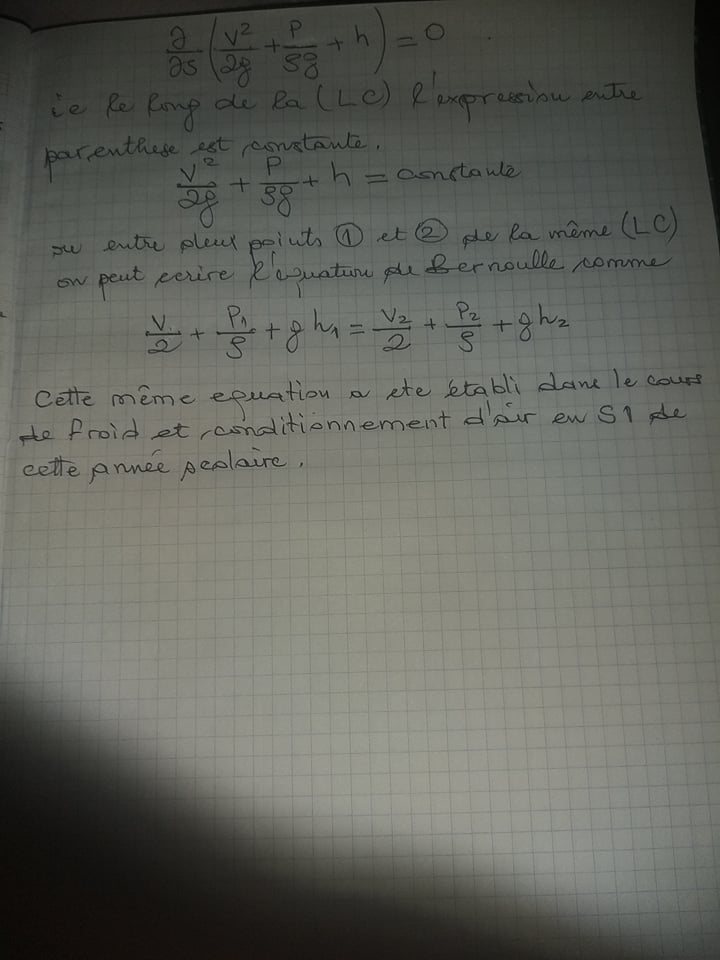 ∂/∂s (V²/2g + P/ρg + h) = 0
ie le long de la (LC) l'expression entre
parenthese est constante.
V²/2g + P/ρg + h = constante
ou entre deux points ① et ② de la même (LC)
on peut ecrire l'equation de Bernoulle comme
V₁/2 + P₁/ρ + g h₁ = V₂/2 + P₂/ρ + g h₂
Cette même equation a ete établi dans le cours
de froid et conditionnement d'air en S1 de
cette année scolaire.